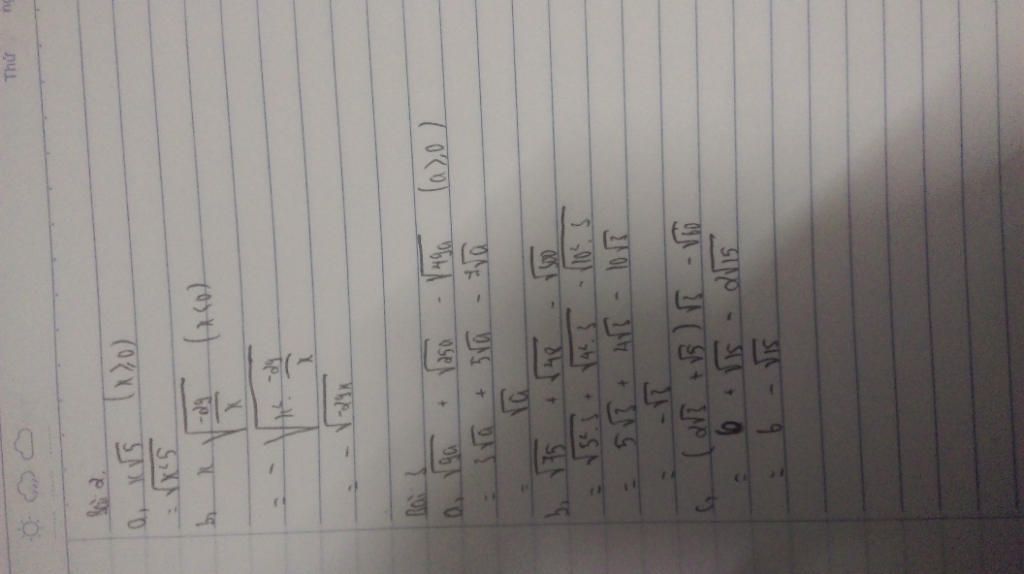 Thứ
Bài 2.
a, x√5 (x ≥ 0)
= √x².5
b, x √(-29/x) (x < 0)
= - √(x². -29/x)
= - √-29x
Bài 3
a, √9a + √25a - √49a (a ≥ 0)
= 3√a + 5√a - 7√a
= √a
b, √75 + √48 - √300
= √5².3 + √4².3 - √10².3
= 5√3 + 4√3 - 10√3
= - √3
c, (2√3 + √5)√3 - √60
= 6 + √15 - 2√15
= 6 - √15